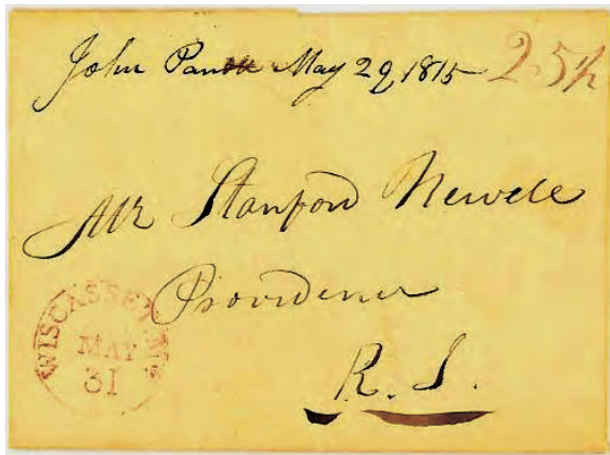 John May 29, 1815 25½
Mr Stanford Newell
Providence
R. I.
WISCASSET. Ms
MAY
31